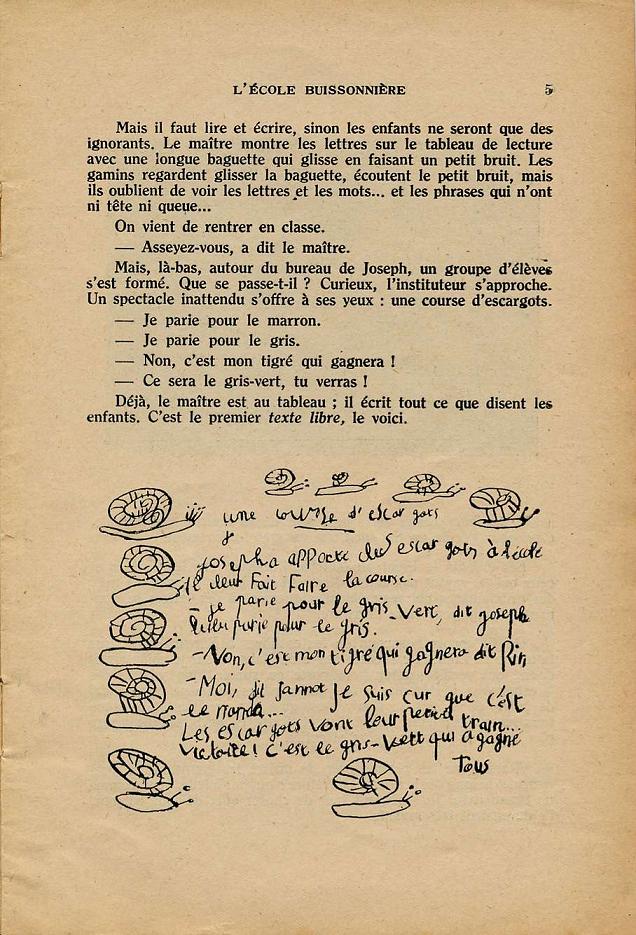 L'ÉCOLE BUISSONNIÈRE 5
Mais il faut lire et écrire, sinon les enfants ne seront que des
ignorants. Le maître montre les lettres sur le tableau de lecture
avec une longue baguette qui glisse en faisant un petit bruit. Les
gamins regardent glisser la baguette, écoutent le petit bruit, mais
ils oublient de voir les lettres et les mots... et les phrases qui n'ont
ni tête ni queue...
On vient de rentrer en classe.
— Asseyez-vous, a dit le maître.
Mais, là-bas, autour du bureau de Joseph, un groupe d'élèves
s'est formé. Que se passe-t-il ? Curieux, l'instituteur s'approche.
Un spectacle inattendu s'offre à ses yeux : une course d'escargots.
— Je parie pour le marron.
— Je parie pour le gris.
— Non, c'est mon tigré qui gagnera !
— Ce sera le gris-vert, tu verras !
Déjà, le maître est au tableau ; il écrit tout ce que disent les
enfants. C'est le premier texte libre, le voici.
une course d'escargots
Joseph a apporté des escargots à l'école
il leur fait faire la course.
— je parie pour le gris-vert, dit joseph
parie pour le gris.
— Non, c'est mon tigré qui gagnera dit
— Moi, dit jannot je suis cur que c'est
le
Les escargots vont leur petit train...
victoire! c'est le gris-vert qui a gagné
Tous